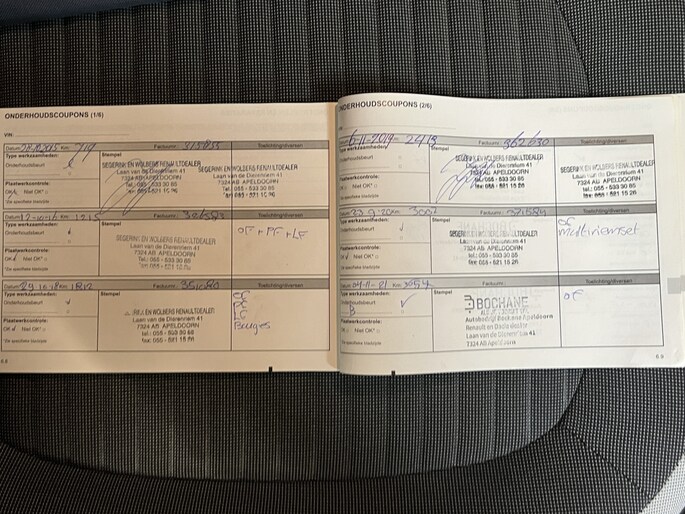 ONDERHOUDSCOUPONS (1/6)
VIN:
Datum Km 719 Factuurnr. Toelichting/diversen
Type werkzaamheden: Stempel
Onderhoudsbeurt
SEGERINK EN WOLBERS RENAULTDEALER
Laan van de Dierenriem 41
7324 AB APELDOORN
Tel.: 055 - 533 30 85
fax: 055 - 521 15 26
SEGERINK EN WOLBERS RENAULTDEALER
Laan van de Dierenriem 41
7324 AB APELDOORN
Tel.: 055 - 533 30 85
fax: 055 - 521 15 26
Plaatwerkcontrole:
OK Niet OK*
*Zie specifieke bladzijde
Datum 12-10-16 Km 1215 Factuurnr. Toelichting/diversen
Type werkzaamheden: Stempel
Onderhoudsbeurt
SEGERINK EN WOLBERS RENAULTDEALER
Laan van de Dierenriem 41
7324 AB APELDOORN
Tel.: 055 - 533 30 85
fax: 055 - 521 15 26
OF + PF + LF
Plaatwerkcontrole:
OK Niet OK*
*Zie specifieke bladzijde
Datum 29-10-18 Km 1812 Factuurnr. 351080 Toelichting/diversen
Type werkzaamheden: Stempel
Onderhoudsbeurt
WOLBERS RENAULTDEALER
Laan van de Dierenriem 41
7324 AB APELDOORN
Tel.: 055 - 533 30 85
fax: 055 - 521 15 26
Bougies
Plaatwerkcontrole:
OK Niet OK*
*Zie specifieke bladzijde
6.8
ONDERHOUDSCOUPONS (2/6)
Datum 6-11-2019 Km 2419 Factuurnr. 362630 Toelichting/diversen
Type werkzaamheden: Stempel
Onderhoudsbeurt
SEGERINK EN WOLBERS RENAULTDEALER
Laan van de Dierenriem 41
7324 AB APELDOORN
Tel.: 055 - 533 30 85
fax: 055 - 521 15 26
SEGERINK EN WOLBERS RENAULTDEALER
Laan van de Dierenriem 41
7324 AB APELDOORN
Tel.: 055 - 533 30 85
fax: 055 - 521 15 26
Plaatwerkcontrole:
OK Niet OK*
*Zie specifieke bladzijde
Datum Km Factuurnr. Toelichting/diversen
Type werkzaamheden: Stempel
Onderhoudsbeurt
SEGERINK EN WOLBERS RENAULTDEALER
Laan van de Dierenriem 41
7324 AB APELDOORN
Tel.: 055 - 533 30 85
fax: 055 - 521 15 26
OF
multiriemset
Plaatwerkcontrole:
OK Niet OK*
*Zie specifieke bladzijde
Datum 04-11-21 Km Factuurnr. Toelichting/diversen
Type werkzaamheden: Stempel
Onderhoudsbeurt
B
BOCHANE
Autobedrijf Bochane Apeldoorn
Renault en Dacia dealer
Laan van de Dierenriem 41
7324 AB Apeldoorn
OF
Plaatwerkcontrole:
OK Niet OK*
*Zie specifieke bladzijde
6.9